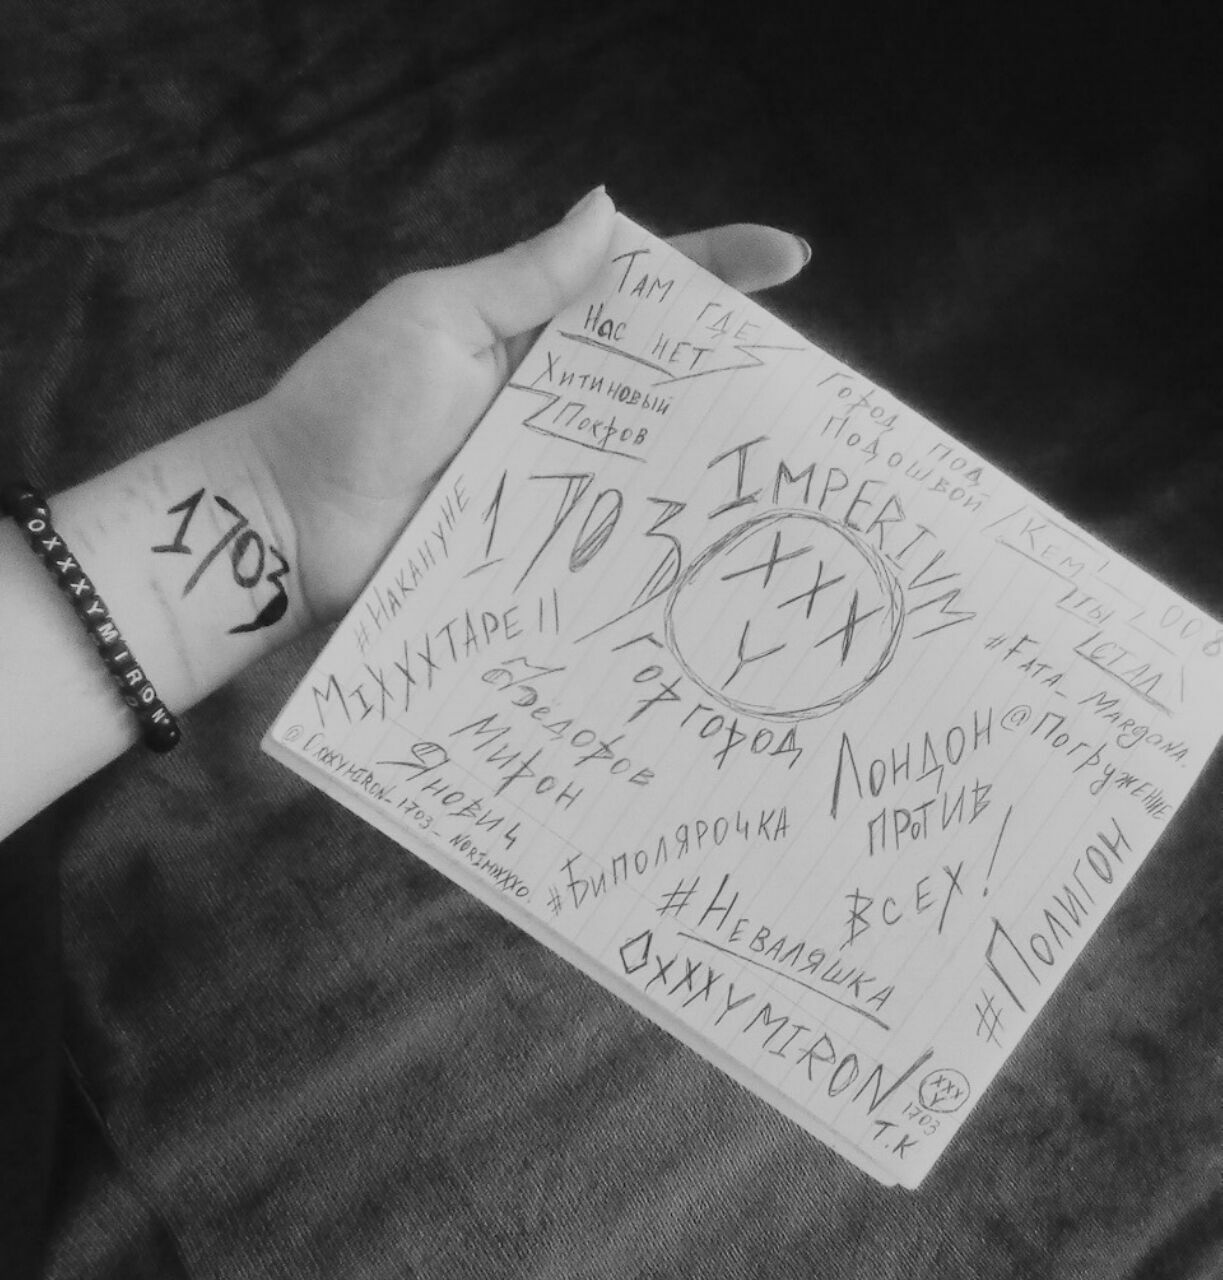 ТАМ ГДЕ
НАС НЕТ
ХИТИНОВЫЙ
ПОКРОВ
ГОРОД ПОД
ПОДОШВОЙ
КЕМ
ТЫ
СТАЛ
008
IMPERIVM
XXX
Y
1703
#НАКАНУНЕ
MIXXXTAPE II
ГОРГОРОД
ФЁДОРОВ
МИРОН
ЯНОВИЧ
@OXXXYMIRON_1703_NORIMYXXXO.
#FATA_MARGANA.
@ПОГРУЖЕНИЕ
ЛОНДОН
ПРОТИВ
ВСЕХ!
#БИПОЛЯРОЧКА
#НЕВАЛЯШКА
#ПОЛИГОН
OXXXYMIRON
XXX
Y
1703
Т.К
1703
OXXXYMIRON